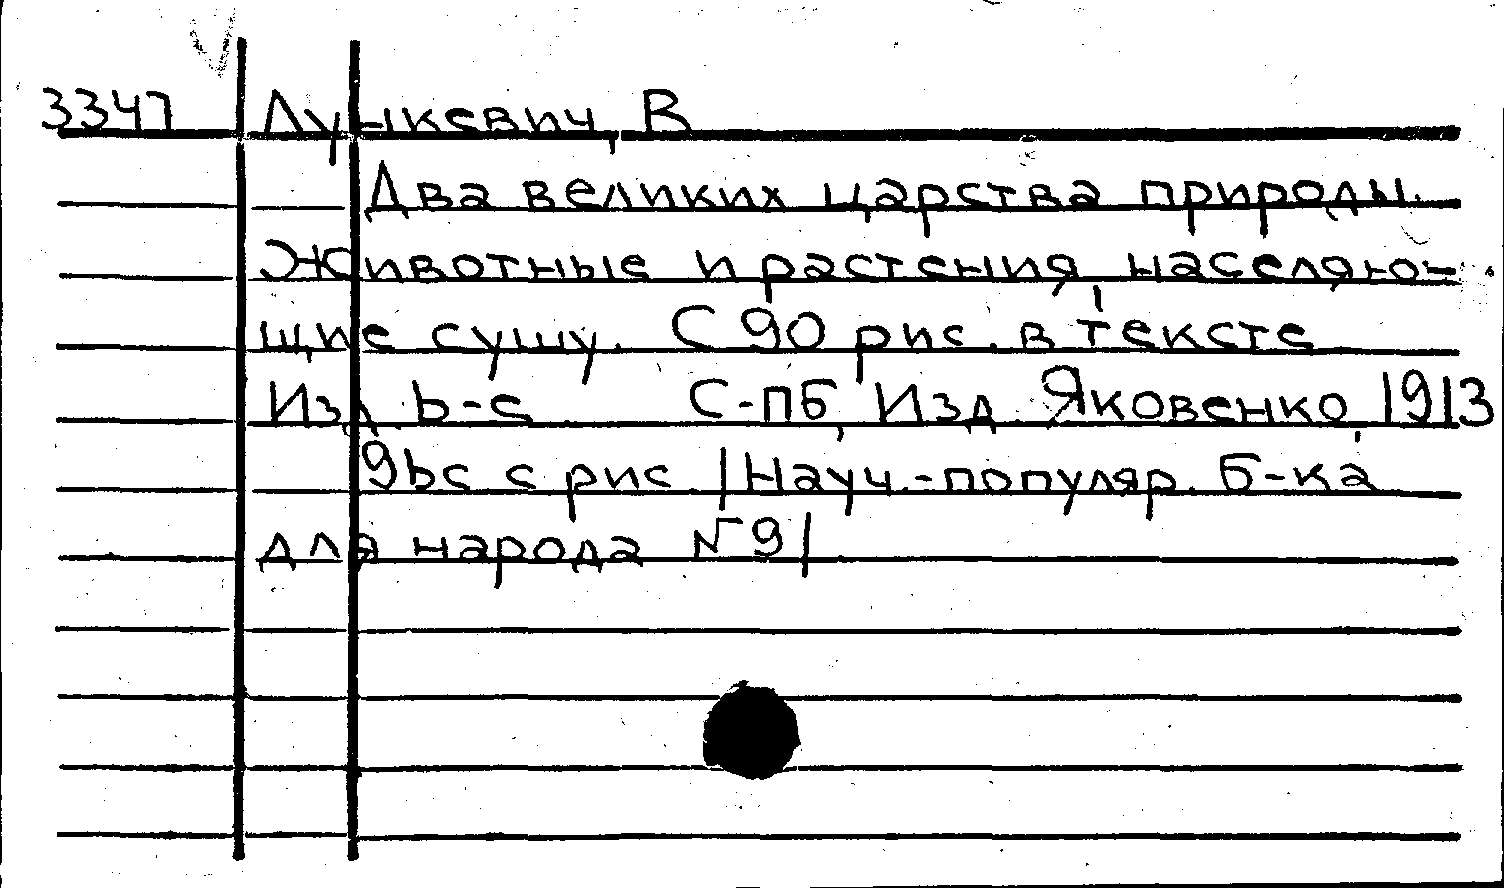 3347 Лункевич, В
Два великих царства природы.
Животные и растения, населяю-
щие сушу. С 90 рис. в тексте
Изд. 6-е С-ПБ, Изд Яковенко, 1913
96с с рис. |Науч.-популяр. Б-ка
для народа №9|